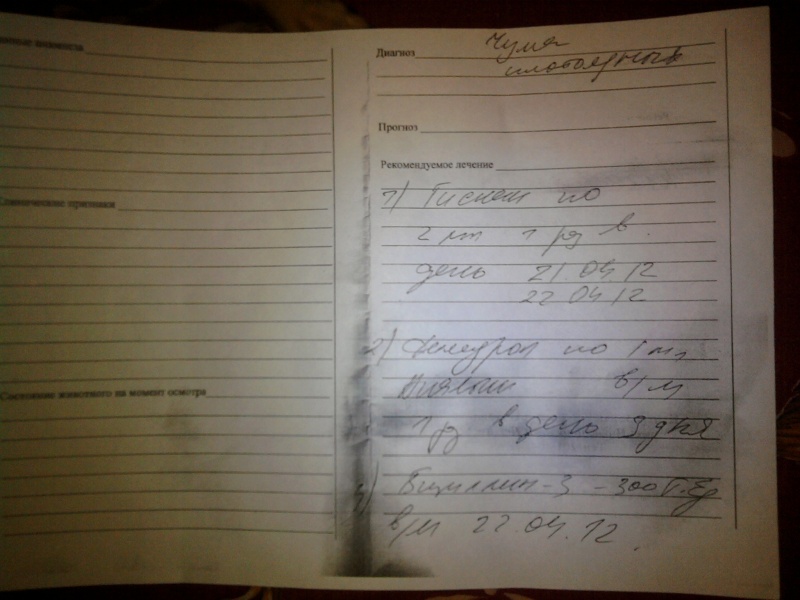 Клинические признаки
Состояние животного на момент осмотра
Диагноз Чума
плотоядных
Прогноз
Рекомендуемое лечение
1) по
2 мл 1 р в
день 21.04 12
22 04 12
2) Димедрол по 1 мл
в/м
1 р в день 3 дня
Бициллин-3 - 300 Т. Ед
в/м 22.04.12